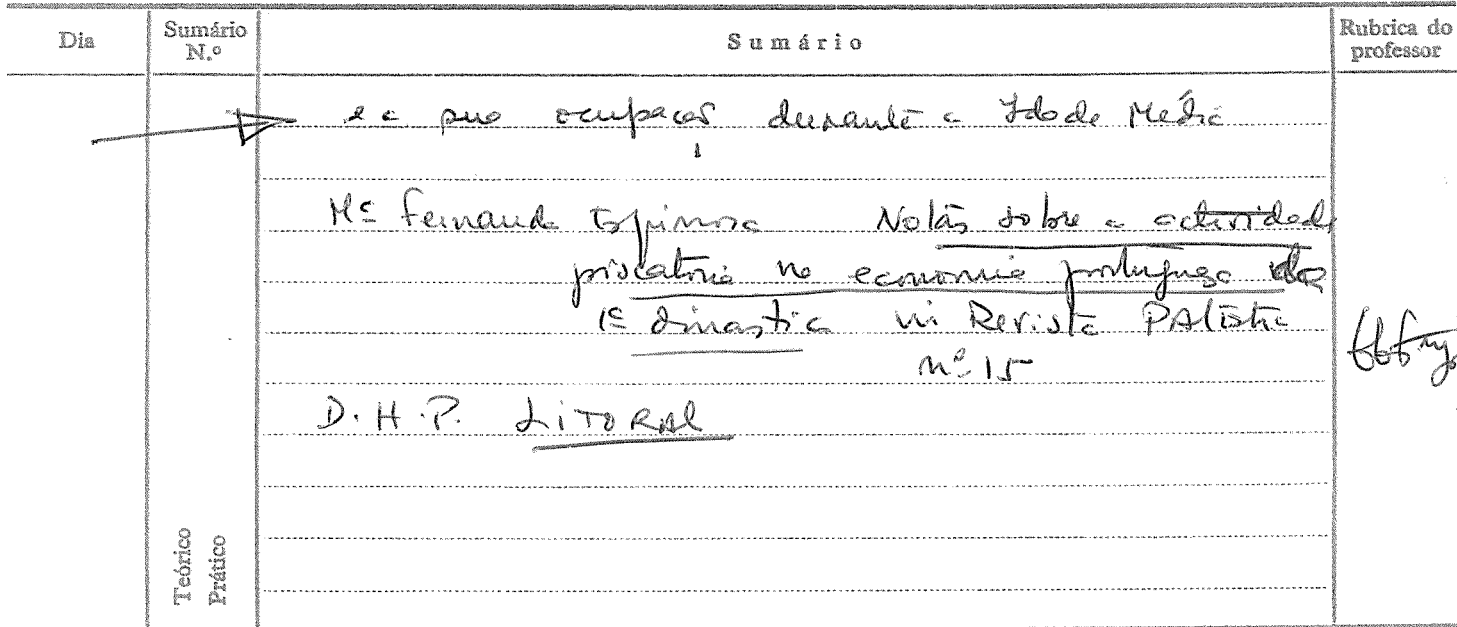 Dia Sumário N.º Sumário Rubrica do professor
e a sua ocupação durante a Idade Média
Mª Fernanda Espinosa Notas sobre a actividade
piscatória na economia portuguesa da
1ª dinastia in Revista
nº 15
D.H.P. LITORAL
Teórico
Prático